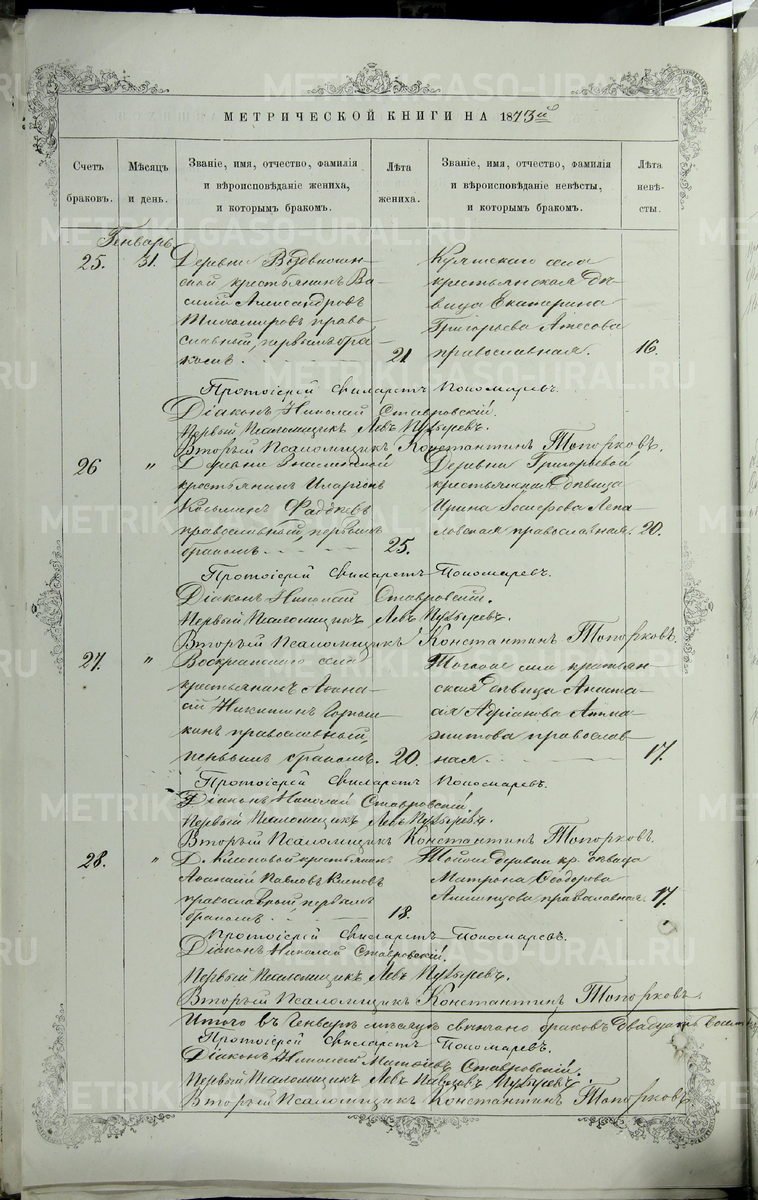 МЕТРИЧЕСКОЙ КНИГИ НА 1873й
Счетъ браковъ.
Мѣсяцъ и день.
Званіе, имя, отчество, фамилія
и вѣроисповѣданіе жениха,
и которымъ бракомъ.
Лѣта жениха.
Званіе, имя, отчество, фамилія
и вѣроисповѣданіе невѣсты,
и которымъ бракомъ.
Лѣта невѣ-
сты.
Генварь
25. 31.
Деревни Воздвижен-
ской крестьянинъ Ва-
силий Александровъ
Тихомировъ право-
славный, первымъ бра-
комъ. 21
села
крестьянская дѣ-
вица Екатерина
Григорьева
православная. 16.
Протоіерей Филаретъ Пономаревъ.
Діаконъ Николай Ставровскій.
Первый Псаломщикъ Левъ Пузыревъ.
Вторый Псаломщикъ Константинъ Топорковъ.
26 "
Деревни
крестьянинъ Иларіонъ
Козьминъ Фадѣевъ
православный, первымъ
бракомъ. 25.
Деревни Григорьевой
крестьянская дѣвица
Ирина Іосифова
православная. 20.
Протоіерей Филаретъ Пономаревъ.
Діаконъ Николай Ставровскій.
Первый Псаломщикъ Левъ Пузыревъ.
Вторый Псаломщикъ Константинъ Топорковъ.
27. "
Воскресенскаго села
крестьянинъ Афана-
сій Никитинъ
православный,
первымъ бракомъ. 20.
Тогоже села крестьян-
ская дѣвица Анаста-
сія Адріанова
православ-
ная 17.
Протоіерей Филаретъ Пономаревъ.
Діаконъ Николай Ставровскій.
Первый Псаломщикъ Левъ Пузыревъ.
Вторый Псаломщикъ Константинъ Топорковъ.
28. "
Д. крестьянинъ
Афанасій Павловъ
православный, первымъ
бракомъ. 18.
Тойже деревни кр. дѣвица
Матрона Ѳеодорова
православная 17.
Протоіерей Филаретъ Пономаревъ.
Діаконъ Николай Ставровскій.
Первый Псаломщикъ Левъ Пузыревъ.
Вторый Псаломщикъ Константинъ Топорковъ
Итого въ Генварѣ мѣсяцѣ свѣнчано браковъ двадцать восемь
Протоіерей Филаретъ Пономаревъ.
Діаконъ Николай Ставровскій.
Первый Псаломщикъ Левъ Пузыревъ.
Вторый Псаломщикъ Константинъ Топорковъ
METRIKI.GASO-URAL.RU